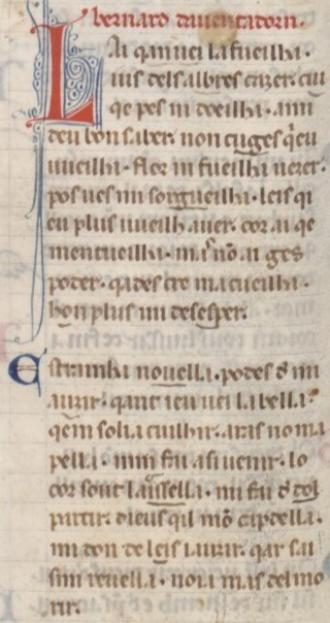 bernard dauentadorn.
Lai qan uei la fueilha.
ius dels albres cazer. cui
qe pes ni dueilha. ami
deu bon saber. non cuges qeu
uueilha. flor ni fueilha uezer.
pos ues mi sorgueilha. leis qi
eu plus uueilh auer. cor ai qe
men tueilha. mas nõ ai ges
poder. qades cre macueilha.
hon plus mi deseſper.
Estranha nouella. podes d mi
auzir. qant ieu uei la bella.
qem solia cuilhir. aras no ma
pella. nim fai asi uenir. lo
cor sotz laissella. mi fai d dol
partir. dieus qil mõ capdella.
mi don de leis iauzir. qar sai
sim reuella. noi a mas del mo
rir.